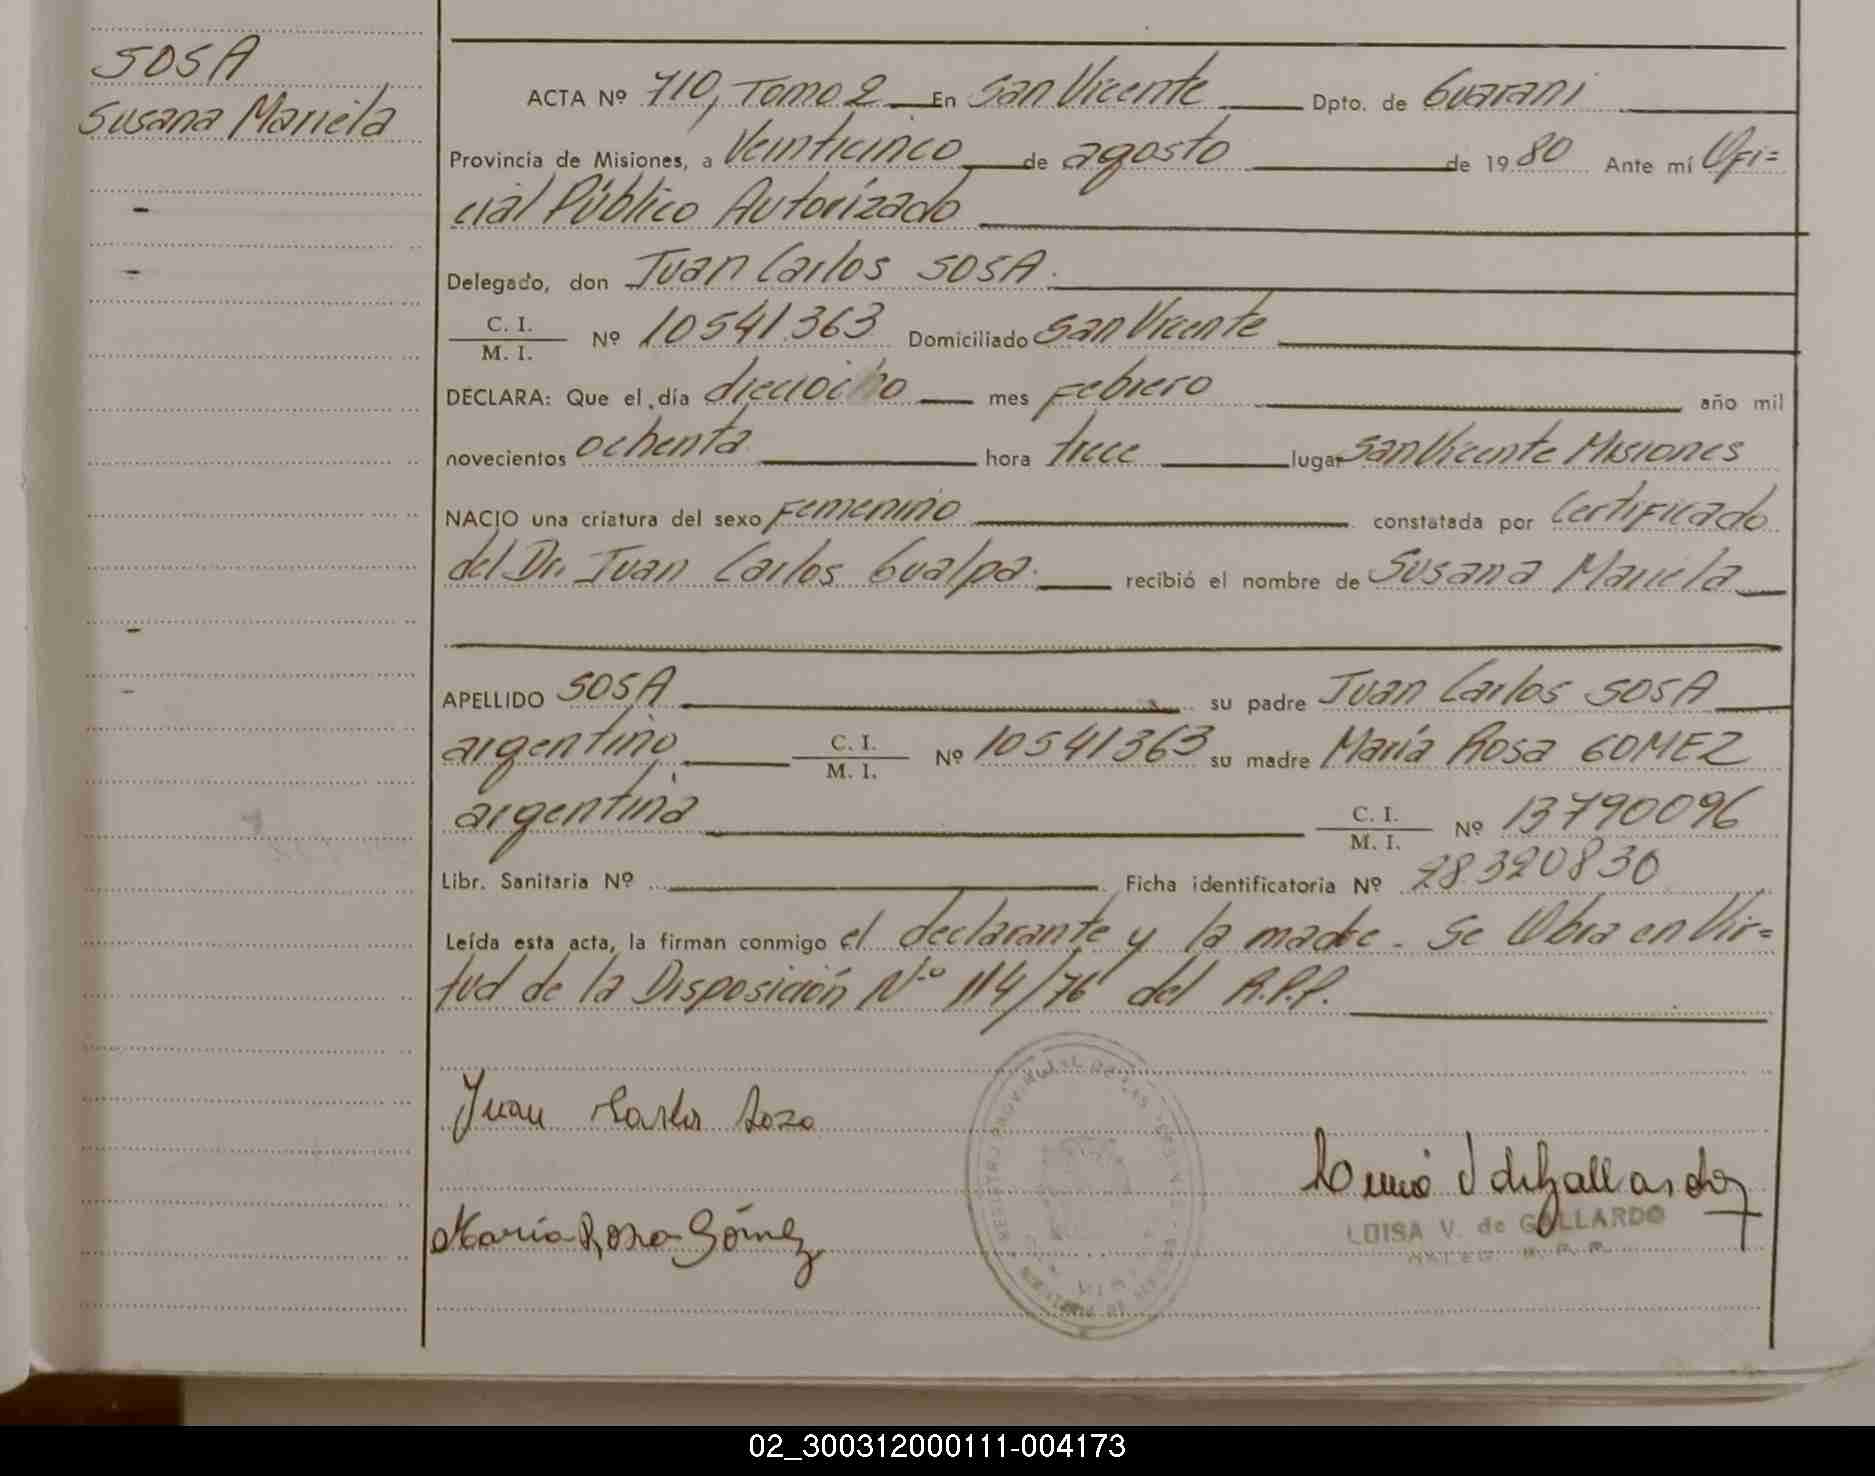 SOSA
Susana Mariela
ACTA Nº 710, Tomo 2 En San Vicente Dpto. de Guarani
Provincia de Misiones, a Veinticinco de agosto de 1980 Ante mí Ofi=
cial Público Autorízado
Delegado, don Juan Carlos SOSA.
C. I.
M. I. Nº 10541.363 Domiciliado San Vicente
DECLARA: Que el día dieciocho mes Febrero año mil
novecientos ochenta hora trece lugar San Vicente Misiones
NACIO una criatura del sexo Femenino constatada por Certificado
del Dr. Juan Carlos Gualpa. recibió el nombre de Susana Mariela
APELLIDO SOSA su padre Juan Carlos SOSA
argentino C. I.
M. I. Nº 10541363 su madre María Rosa GOMEZ
argentina C. I.
M. I. Nº 13790096
Libr. Sanitaria Nº Ficha identificatoria Nº 28.320830
Leída esta acta, la firman conmigo el declarante y la madre. Se Obra en Vir=
tud de la Disposición Nº 114/76 del R.P.P.
Juan Carlos Soza
María Rosa Gómez
LUISA V. de GALLARDO
02_300312000111-004173